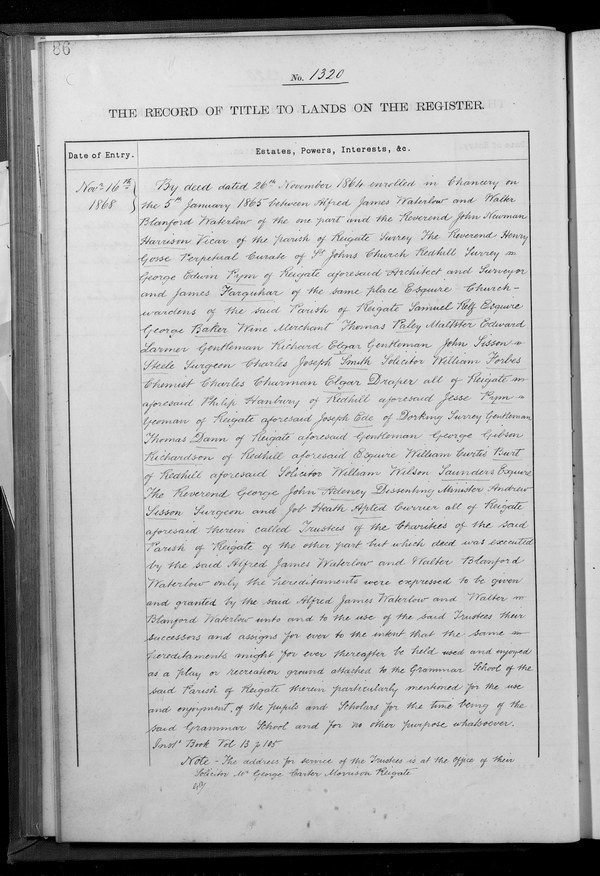 86
No. 1320
THE RECORD OF TITLE TO LANDS ON THE REGISTER.
Date of Entry.
Estates, Powers, Interests, &c.
Novr 16th
1868
By deed dated 26th November 1864 enrolled in Chancery on
the 5th January 1865 between Alfred James Waterlow and Walter
Blanford Waterlow of the one part and the Reverend John Newman
Harrison Vicar of the parish of Reigate Surrey The Reverend Henry
Gosse Perpetual Curate of St Johns Church Redhill Surrey
George Edwin Pym of Reigate aforesaid Architect and Surveyor
and James Farquhar of the same place Esquire Church-
wardens of the said Parish of Reigate Samuel Relf Esquire
George Baker Wine Merchant Thomas Paley Maltster Edward
Larmer Gentleman Richard Elgar Gentleman John Sisson
Steele Surgeon Charles Joseph Smith Solicitor William Forbes
Chemist Charles Churman Elgar Draper all of Reigate
aforesaid Philip Hanbury of Redhill aforesaid Jesse Pym
Yeoman of Reigate aforesaid Joseph Ede of Dorking Surrey Gentleman
Thomas Dann of Reigate aforesaid Gentleman George Gibson
Richardson of Redhill aforesaid Esquire William Curtis Burt
of Redhill aforesaid Solicitor William Wilson Saunders Esquire
The Reverend George John Adeney Dissenting Minister Andrew
Sisson Surgeon and Job Heath Apted Currier all of Reigate
aforesaid therein called Trustees of the Charities of the said
Parish of Reigate of the other part but which deed was executed
by the said Alfred James Waterlow and Walter Blanford
Waterlow only the hereditaments were expressed to be given
and granted by the said Alfred James Waterlow and Walter
Blanford Waterlow unto and to the use of the said Trustees their
successors and assigns for ever to the intent that the same
hereditaments might for ever thereafter be held used and enjoyed
as a play or recreation ground attached to the Grammar School of the
said Parish of Reigate therein particularly mentioned for the use
and enjoyment of the pupils and Scholars for the time being of the
said Grammar School and for no other purpose whatsoever.
Inst Book Vol 13 p 105
Note - The address for service of the Trustees is at the Office of their
Solicitor Mr George Carter Morrison Reigate